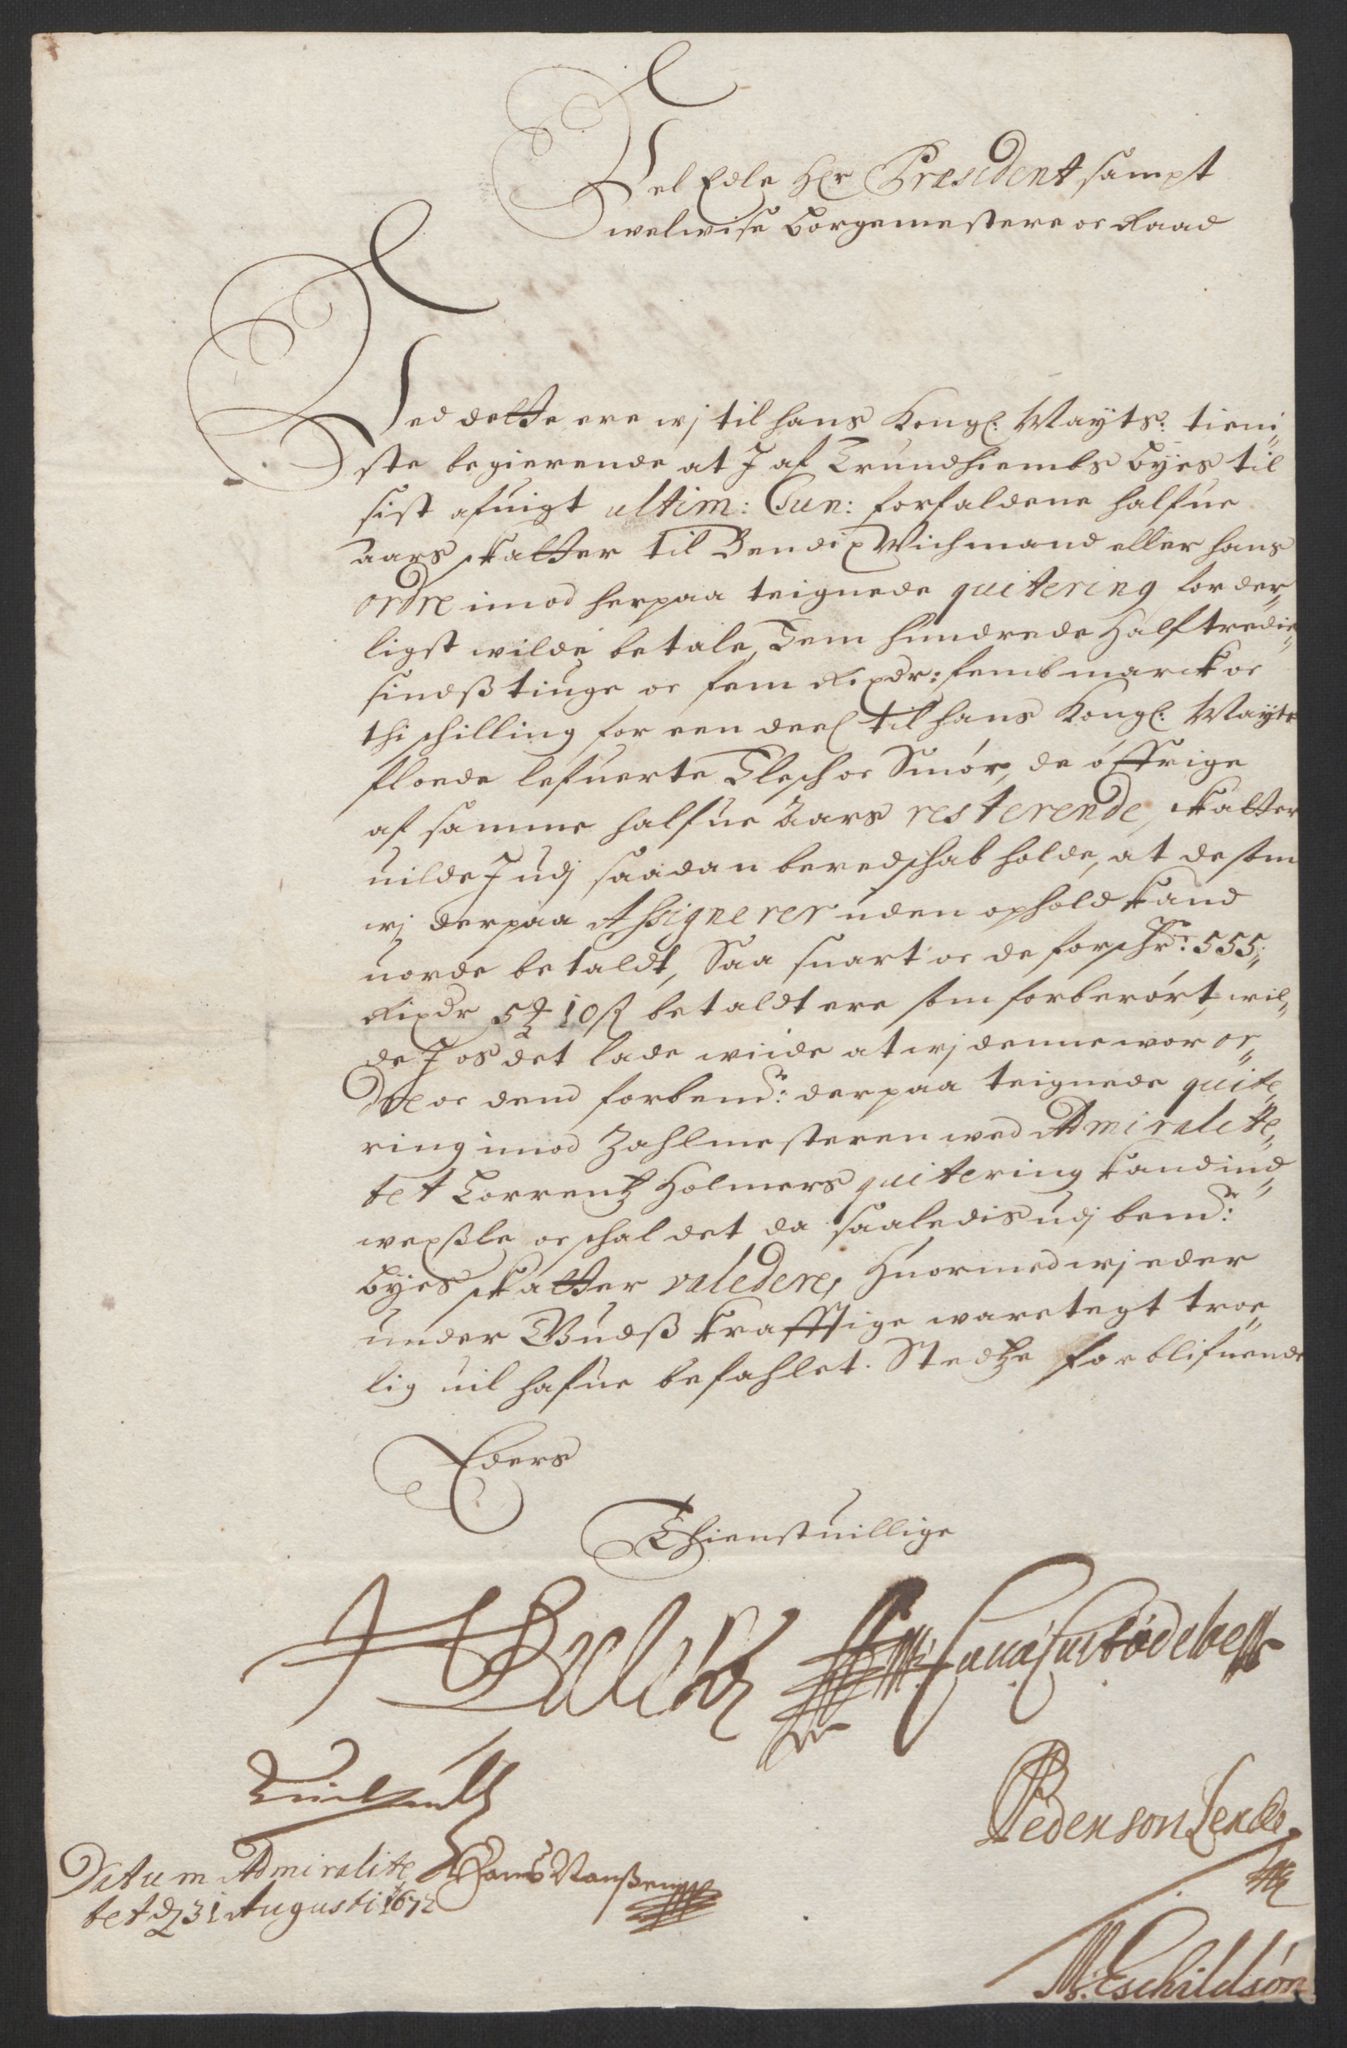 Vel Edle Hr President sampt
welwise Borgemestere oc Raad
Ved dette ere wj til hans Kongl: Mayts: tieni-
ste begierende at J af Trundhiembs Byes til
sist afuigt ultim: Jun: forfaldene halfue
aars skatter til Bendix Wichmand eller hans
ordre imod herpaa teignede quitering forder-
ligst wilde betale, Fem hundrede Halftredie-
sindstiuge oc fem Rixdr: femb marck oc
thi schilling for een deel til hans Kongl: Mayts
floede lefuerte Flesch oc Smør, de øffrige
af samme halfue Aars resterende skatter
uilde J udj saadan beredschab holde, at de som
wj derpaa Assignerer uden ophold kand
uorde betaldt, Saa snart oc de forschr: 555:
Rixdr 5 ꝶ 10 ß betaldt ere som forberørt, wil-
de J os det lade wiide at wj denne wor or-
dre oc dend forbemr: derpaa teignede quite-
ring imod Zahlmesteren wed Admiralite-
tet Lorrentz Holmers quitering kand ind-
wexsle oc schal det da saaledis udj bemr:
Byes skatter validere, Huormed wj eder
under Gudß krafftige waretegt troe-
lig uil hafue befahlet. Stedtze forblifuende
Eders
Thienstuillige
H Bielke
Jens Rodsteen
Peder Sørensen Lerche
Datum Admiralite
tet d 31 Augusti 1672
Hans Nansen
M: Eschildsøn